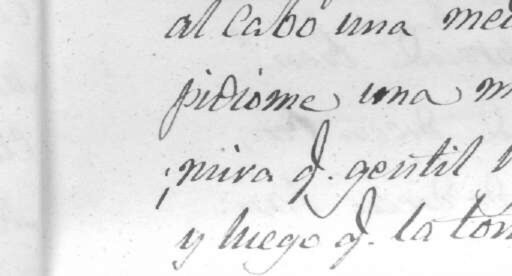 al cabo una
pidiome una
¡mira q. gentil
y luego q. la